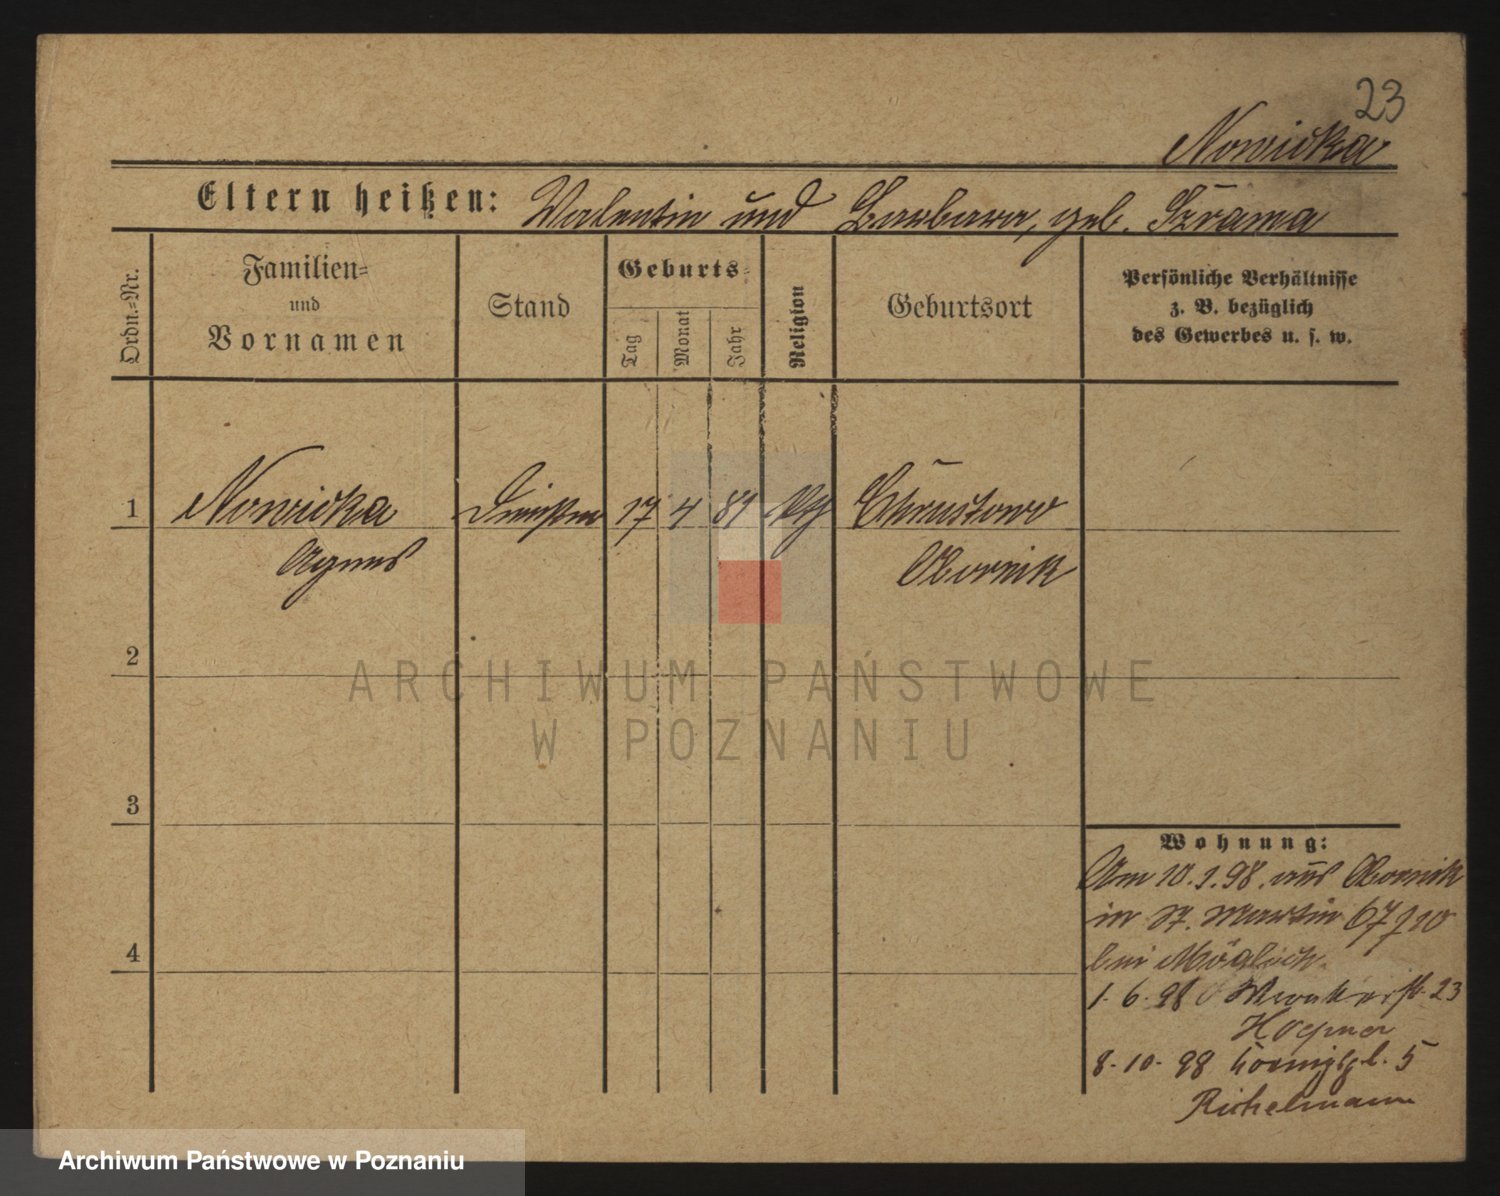 23
Nowicka
Eltern heißen: Valentin und Barbara, geb. Szrama
Ordn.-Nr.
Familien-
und
Vornamen
Stand
Geburts-
Tag
Monat
Jahr
Religion
Geburtsort
Persönliche Verhältnisse
z. B. bezüglich
des Gewerbes u. s. w.
1 Nowicka 17 4 81 Chrustowo
Agnes Obornik
2
ARCHIWUM PAŃSTWOWE
W POZNANIU
3
4
Wohnung:
Am 10.1.98. aus Obornik
in St. Martin 67
bei Möglich.
1.6.98 23
8.10.98 5
Richelmann
Archiwum Państwowe w Poznaniu